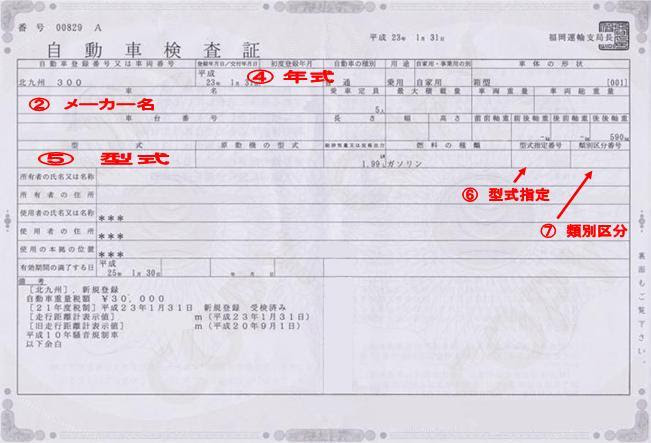 番号 00829 A
平成 23年 1月 31日
福岡運輸支局長
自動車検査証
自動車登録番号又は車両番号 登録年月日/交付年月日 初度登録年月 自動車の種別 用途 自家用・事業用の別 車体の形状
平成
北九州 300 23年 1月31日 ④ 年式 普通 乗用 自家用 箱型 [001]
車名 乗車定員 最大積載量 車両重量 車両総重量
② メーカー名 5人
車台番号 長さ 幅 高さ 前前軸重 前後軸重 後前軸重 後後軸重
-kg -kg 590kg
型式 原動機の型式 総排気量又は定格出力 燃料の種類 型式指定番号 類別区分番号
⑤ 型式 1.99 ガソリン
所有者の氏名又は名称
⑥ 型式指定
所有者の住所
使用者の氏名又は名称 ***
⑦ 類別区分
使用者の住所 ***
使用の本拠の位置 ***
平成
有効期間の満了する日 25年 1月 30日
備考
[北九州],新規登録
自動車重量税額 ¥30,000
[21年度税制]平成23年1月31日 新規登録 受検済み
[走行距離計表示値] m(平成23年1月31日)
[旧走行距離計表示値] m(平成20年9月1日)
平成10年騒音規制車
以下余白
裏面もご覧下さい。